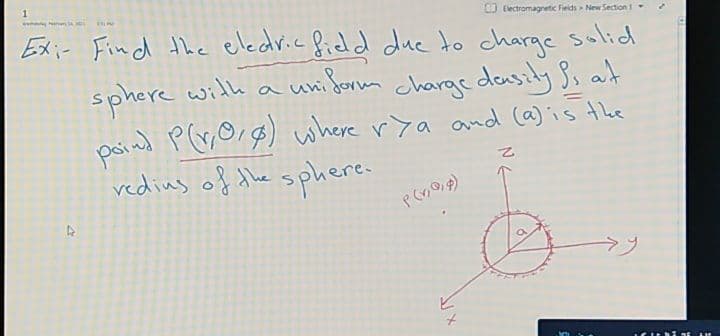 1
Electromagnetic Fields > New Section 1
Ex:- Find the electric field due to charge solid
sphere with a uniform charge density ρs at
point P(r,θ,φ) where r>a and (a) is the
redius of the sphere.
P(r,θ,φ)
z
a
y
x